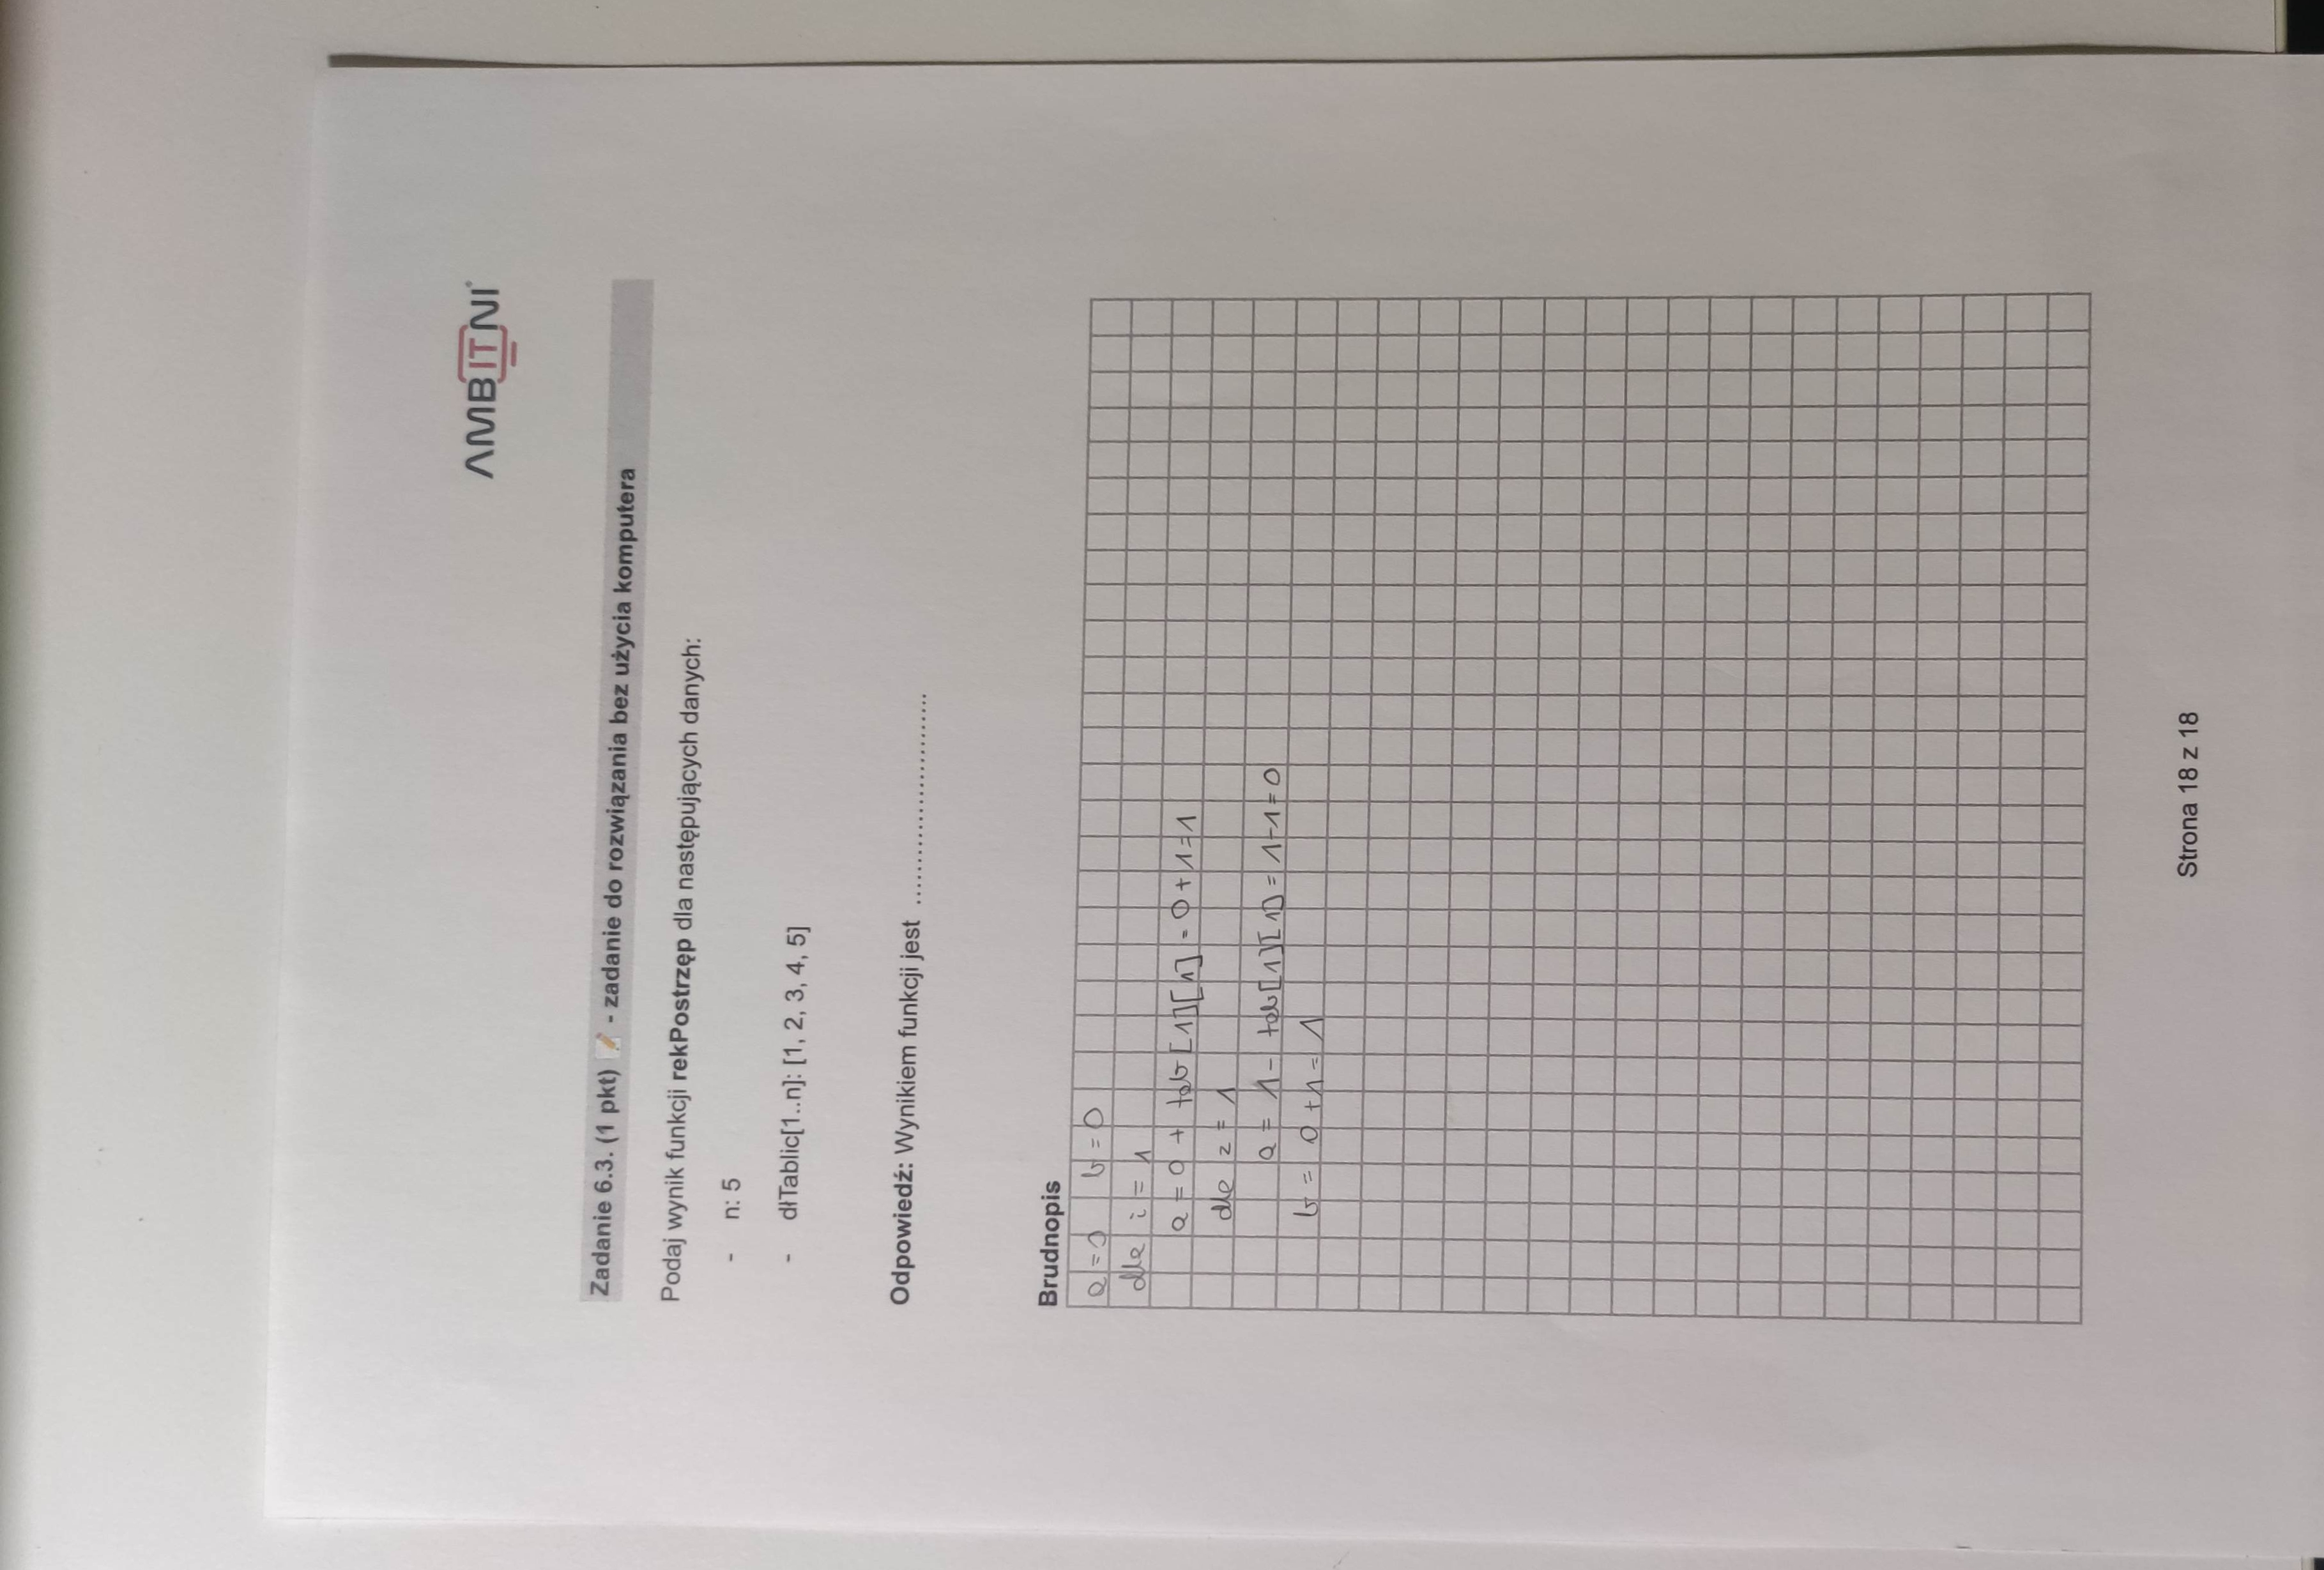 AMBITNI
Zadanie 6.3. (1 pkt) 📝 - zadanie do rozwiązania bez użycia komputera
Podaj wynik funkcji rekPostrzęp dla następujących danych:
- n: 5
- dłTablic[1..n]: [1, 2, 3, 4, 5]
Odpowiedź: Wynikiem funkcji jest ..............................
Brudnopis
a = 0 b = 0
dla i = 1
a = 0 + tab[1][1] = 0 + 1 = 1
dla z = 1
a = 1 - tab[1][1] = 1 - 1 = 0
b = 0 + 1 = 1
Strona 18 z 18